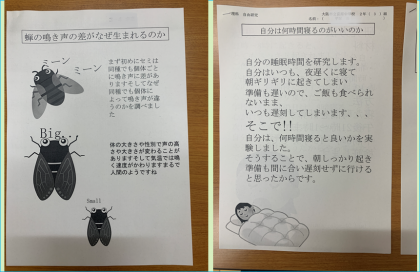 蝉の鳴き声の差がなぜ生まれるのか
ミーン
ミーン
まず初めにセミは
同種でも個体ごと
に鳴き声に差があ
りますそしてなぜ
同種でも個体に
よって鳴き声が違
うのかを調べまし
た
Big
体の大きさや性別で声の高
さや大きさが変わることが
ありますそして気温では鳴
く速度がかわりますまるで
人間のようですね
Small
自分は何時間寝るのがいいのか
自分の睡眠時間を研究します。
自分はいつも、夜遅くに寝て
朝ギリギリに起きてしまい
準備も遅いので、ご飯も食べられ
ないまま、
いつも遅刻してしまいます、、、
そこで!!
自分は、何時間寝ると良いかを実
験しました。
そうすることで、朝しっかり起き
準備も間に合い遅刻せずに行ける
と思ったからです。